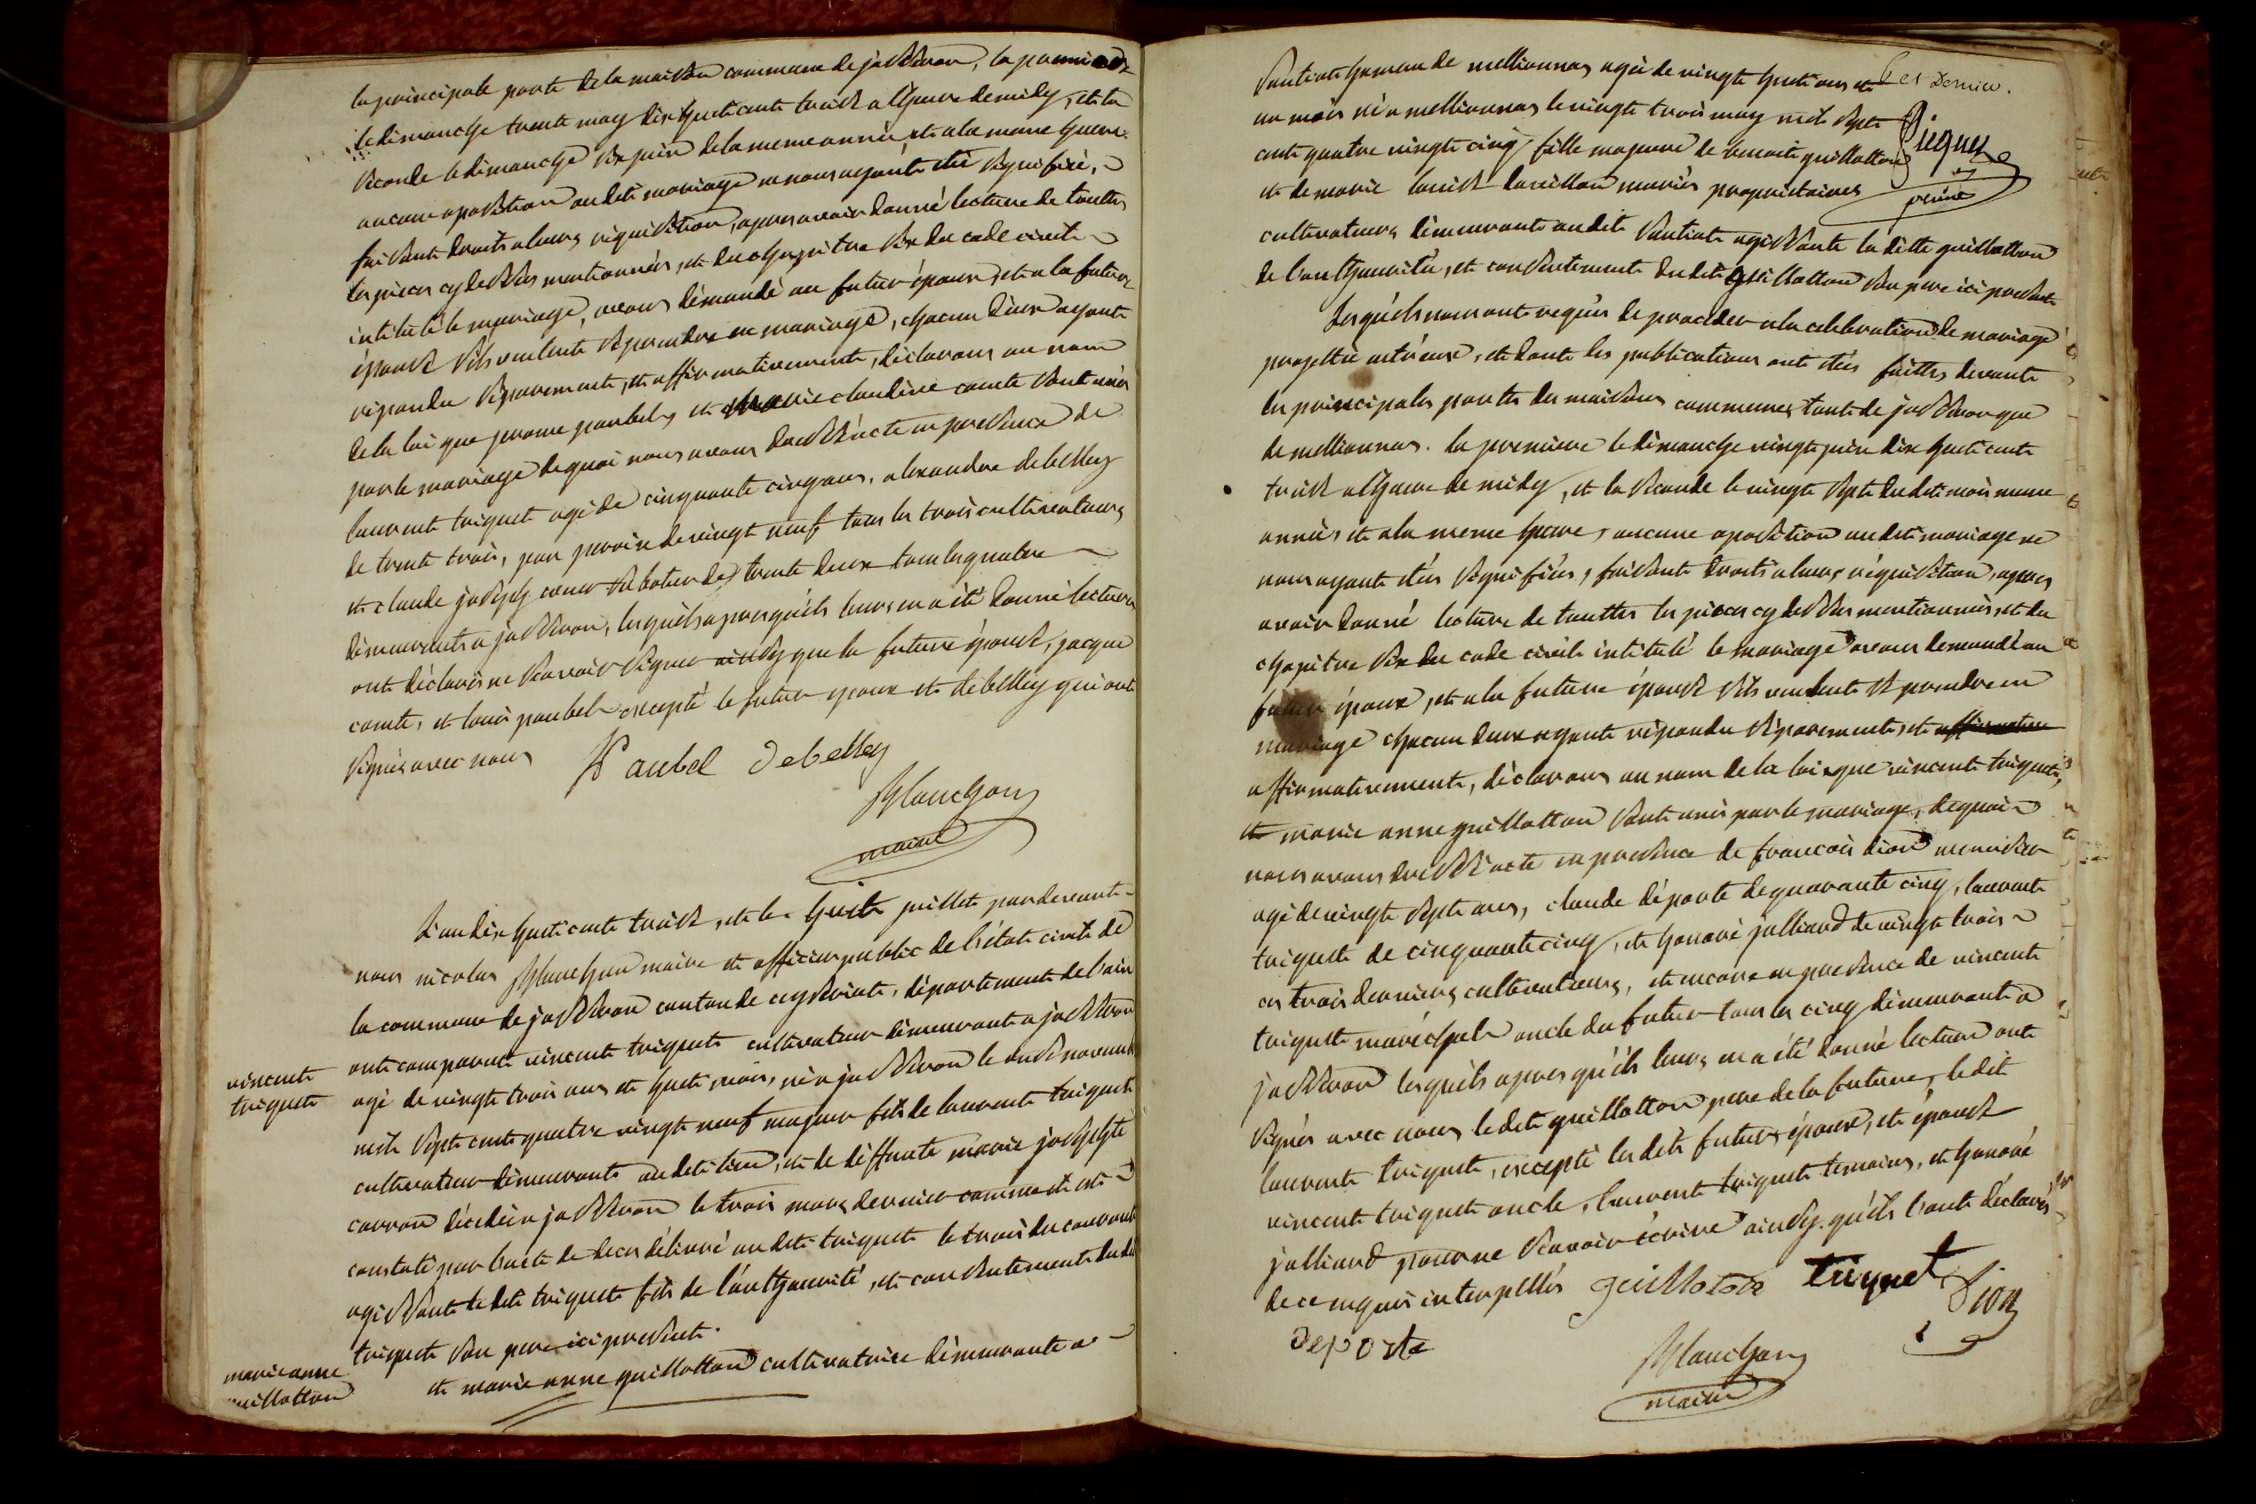 la principale porte de la maison commune de jasseron, la premiere
le dimanche trente may dix huit cent treise a lheure de midy, et la
seconde le dimanche six juin de la meme année, et a la meme heure
aucune oposition au dit mariage ne nous ayant été signifié,
faisant droit a leurs réquisition, apres avoir donné lecture de touttes
les pieces cy dessus mentionnées, et du chapitre six du code civil
intitulé le mariage, avons démandé au futur époux, et a la future
épouse s'ils veulent se prendre en mariage, chacun d'eux ayant
répondu séparement, et affirmativement, déclarons au nom
de la loi que jerome paubel, et marie claudine comte sont unis
par le mariage de quoi nous avons dressé acte en presence de
laurent triquet agé de cinquante cinq ans, alexandre debelley
de trente trois, jean peroix de vingt neuf tous les trois cultivateurs
et claude joseph sabotier de trente deux tous les quatre
démeurants a jasseron, lesquels apres qu'ils leurs en a été donné lecture
ont déclarés ne scavoir signer ainsy que la future épouse, jacque
comte, et louis paubel excepté le futur epoux et debelley qui ont
signés avec nous
Paubel debelley
Blanchon
maire
L'an dix huit cent treise, et le huit juillet pardevant
nous nicolas Blanchon maire et officier public de l'état civil de
la commune de jasseron canton de ceyseriat, département de l'ain
vincent
triquet
ont comparut vincent triquet cultivateur démeurant a jasseron
agé de vingt trois ans et huit mois, né a jasseron le onse novembre
mil sept cent quatre vingt neuf majeur fils de laurent triquet
cultivateur démeurant au dit lieu, et de déffunte marie josephte
carron décedée a jasseron le trois mars dernier comme il est
constaté par l'acte de deces délivré au dit triquet le trois du courant
agissant le dit triquet fils de l'authaurité, et consentement du dit
triquet son pere ici present.
marie anne
guillotton
et marie anne guillotton cultivatrice démeurante a
Santiat hameau de meillonnas agée de vingt huit ans et
un mois née a meillonnas le vingt trois may mil sept
cent quatre vingt cinq fille majeure de benoit guillotton
et de marie louise mariés propriétaires
cultivateurs démeurants au dit Santiat agissante la ditte guillotton
de l'authaurité, et consentement du dit guillotton son pere ici present
Lesquels nous ont requis de proceder a la célebration de mariage
projetté entr'eux, et dont les publications ont étés faittes devant
les principales portes des maisons communes tant de jasseron que
de meillonnas. la premiere le dimanche vingt juin dix huit cent
treise a lheure de midy, et la seconde le vingt sept du dit mois meme
année et a la meme heure, aucune oposition au dit mariage ne
nous ayant étés signifiés, faisant droit a leurs réquisition, apres
avoir donné lecture de touttes les pieces cy dessus mentionnées, et du
chapitre six du code civil intitulé le mariage avons demandé au
futur époux, et a la future épouse s'ils veulent se prendre en
mariage chacun d'eux ayant répondu séparement, et
affirmativement, déclarons au nom de la loi que vincent triquet,
et marie anne guillotton sont unis par le mariage, de quoi
nous avons dressé acte en presence de francois dion menuisier
agé de vingt sept ans, claude déporte de quarante cinq, laurent
triquet de cinquante cinq, et honoré julliard de vingt trois
ces trois derniers cultivateurs, et encore en presence de vincent
triquet maréchal oncle du futur tous les cinq démeurant a
jasseron lesquels apres qu'ils leurs en a été donné lecture ont
signés avec nous le dit guillotton pere de la future, le dit
laurent triquet, excepté les dits futurs époux, et épouse
vincent triquet oncle, laurent triquet temoins, et honoré
julliard pour ne scavoir écrire ainsy qu'ils l'ont déclarés
de ce enquis interpellés
guillotton triquet Dion
deporte
Blanchon
maire